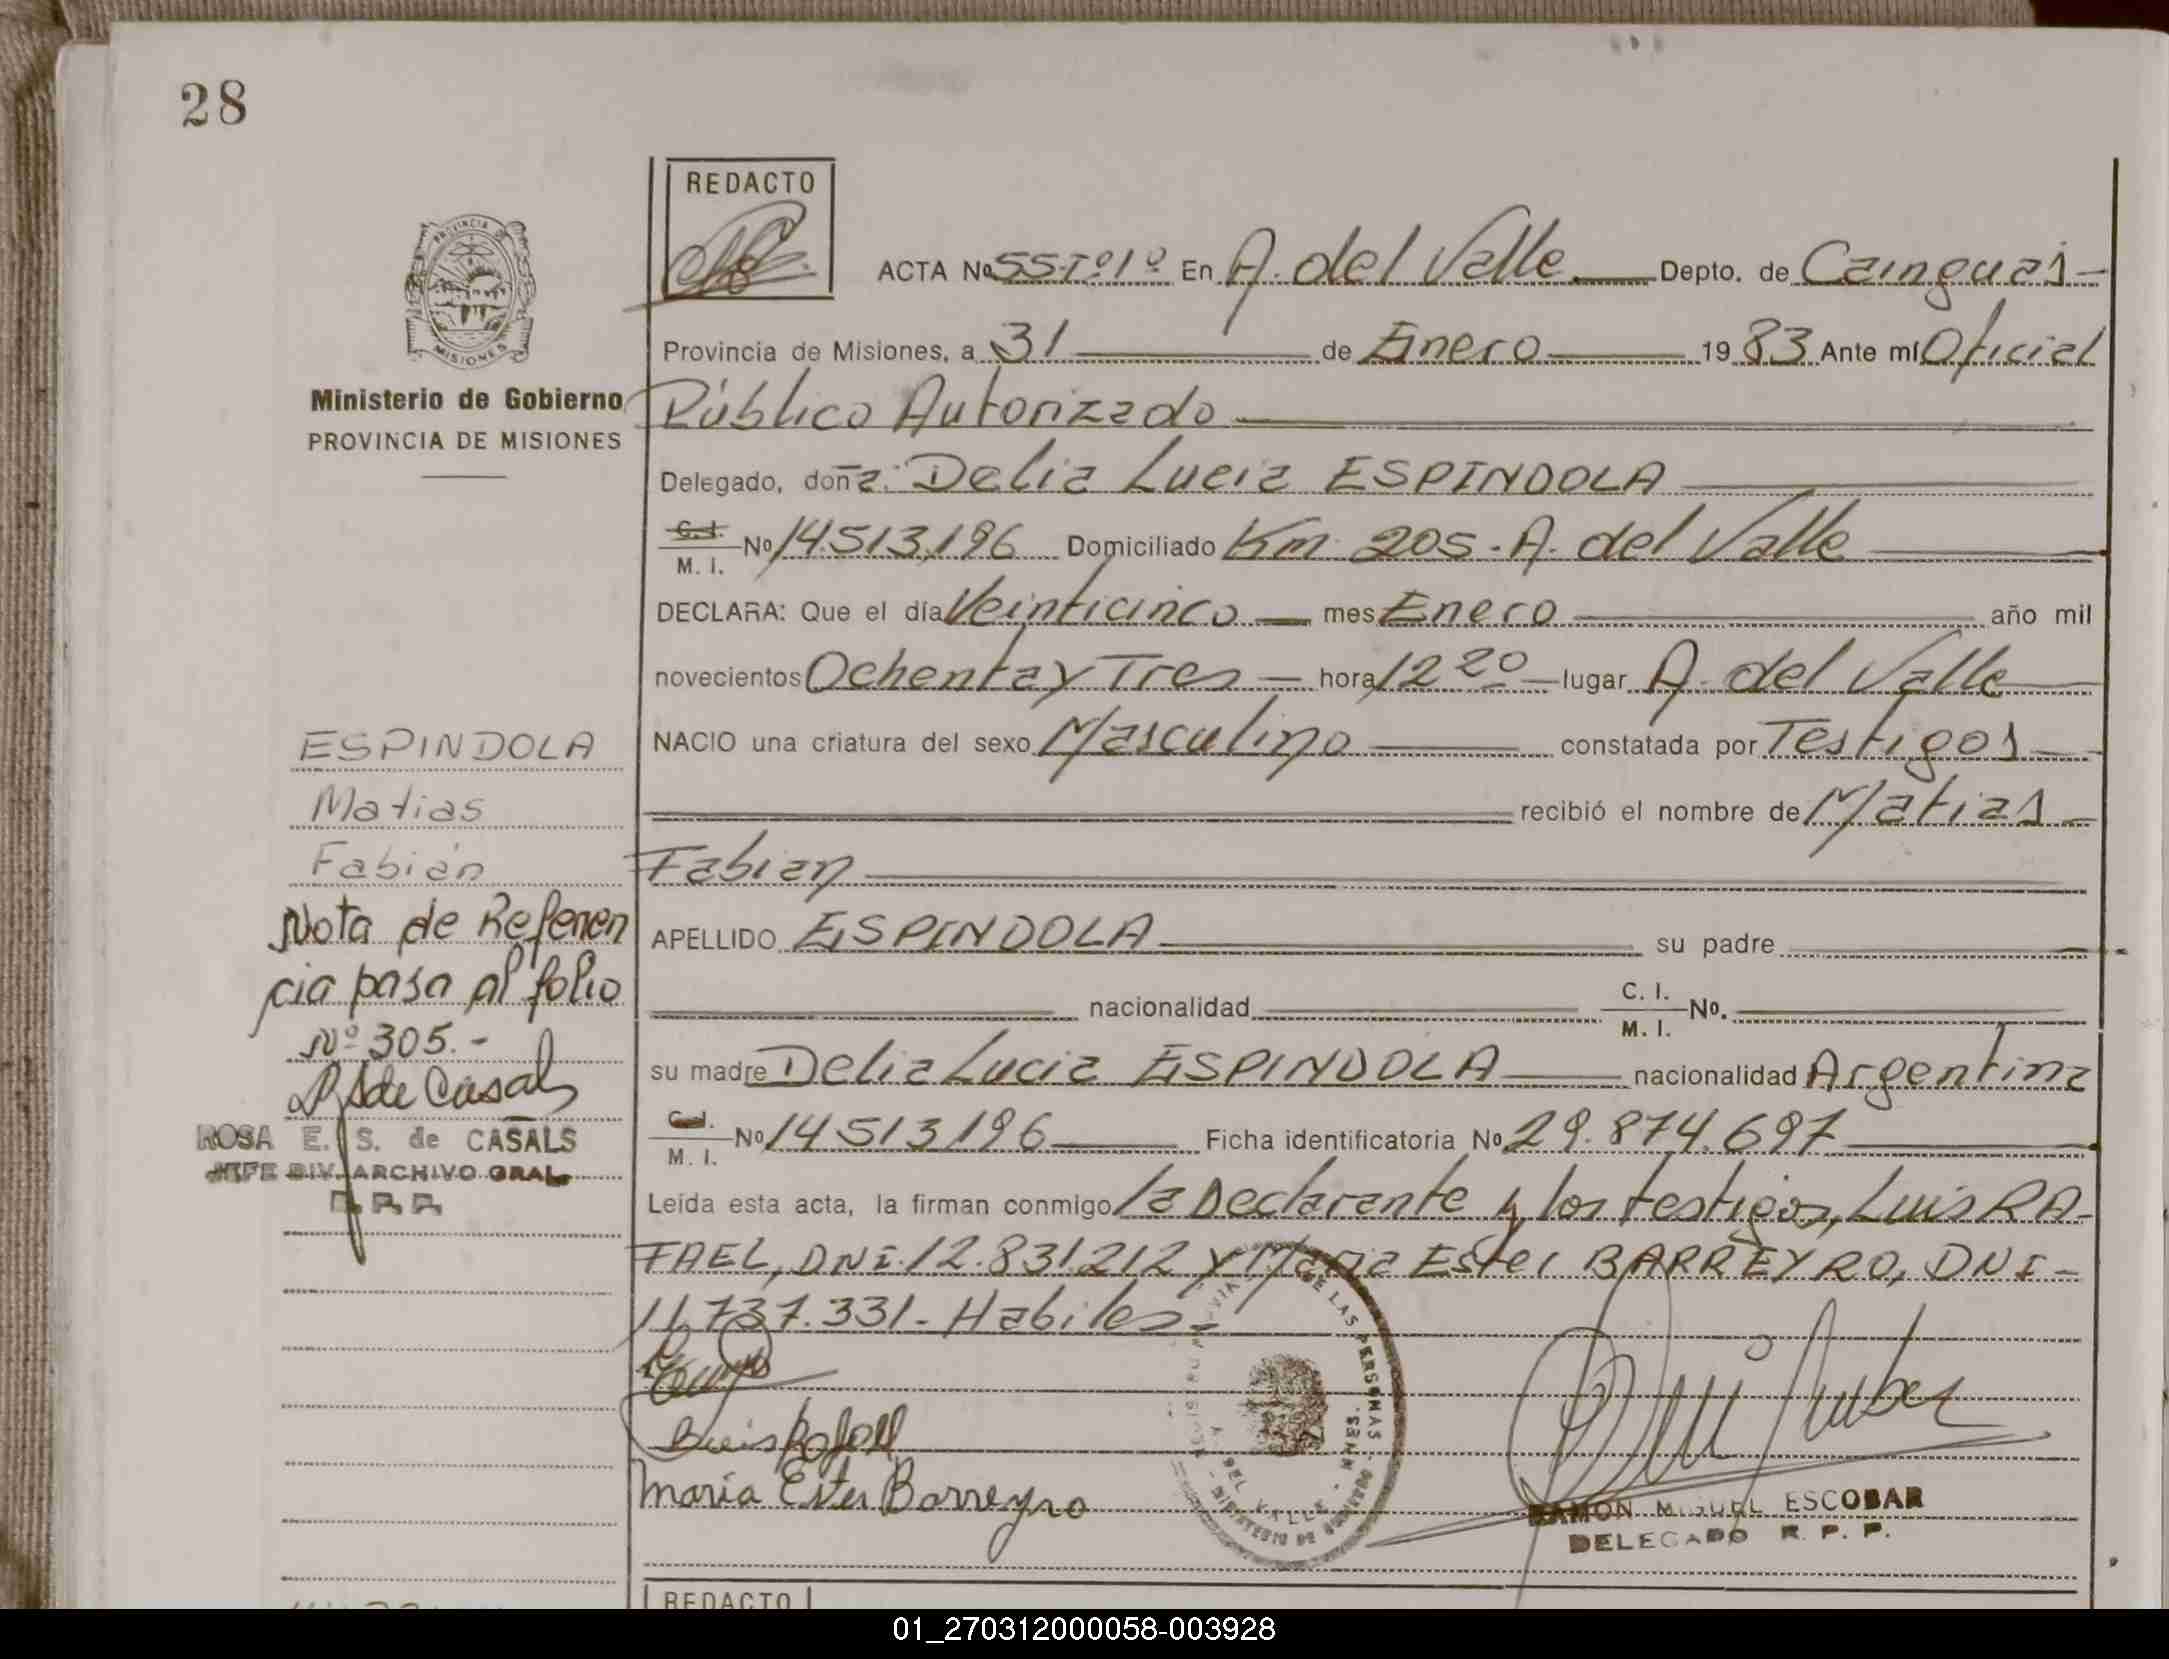 28
REDACTO
ACTA Nº 55-Tº1º En A. del Valle Depto. de Cainguas
Provincia de Misiones, a 31 de Enero 1983 Ante mí Oficial
Público Autorizado
Delegado, doña: Delia Lucia ESPINDOLA
C.I. M. I. Nº 14.513.196 Domiciliado Km 205 - A. del Valle
DECLARA: Que el día Veinticinco mes Enero año mil
novecientos Ochenta y Tres hora 12 20 lugar A. del Valle
NACIO una criatura del sexo Masculino constatada por Testigos
recibió el nombre de Matias
Fabian
APELLIDO ESPINDOLA su padre
nacionalidad C. I. M. I. No.
su madre Delia Lucia ESPINDOLA nacionalidad Argentina
C.I. M. I. Nº 14513196 Ficha identificatoria Nº 29.874.697
Leída esta acta, la firman conmigo la Declarante y los testigos, Luis RA-
FAEL, DNI. 12.831.212 y Maria Ester BARREYRO, DNI-
11.737.331- Habiles-
Luis Rafael
María Ester Barreyro
RAMON MIGUEL ESCOBAR
DELEGADO R. P. P.
REDACTO
PROVINCIA DE
MISIONES
Ministerio de Gobierno
PROVINCIA DE MISIONES
ESPINDOLA
Matias
Fabián
Nota de Referen
cia pasa al folio
Nº 305.-
R S de Casals
ROSA E. S. de CASALS
JEFE DIV. ARCHIVO GRAL.
R. P. P.
DE LAS PERSONAS
A. DEL VALLE - MNES.
MINISTERIO DE GOBIERNO
01_270312000058-003928